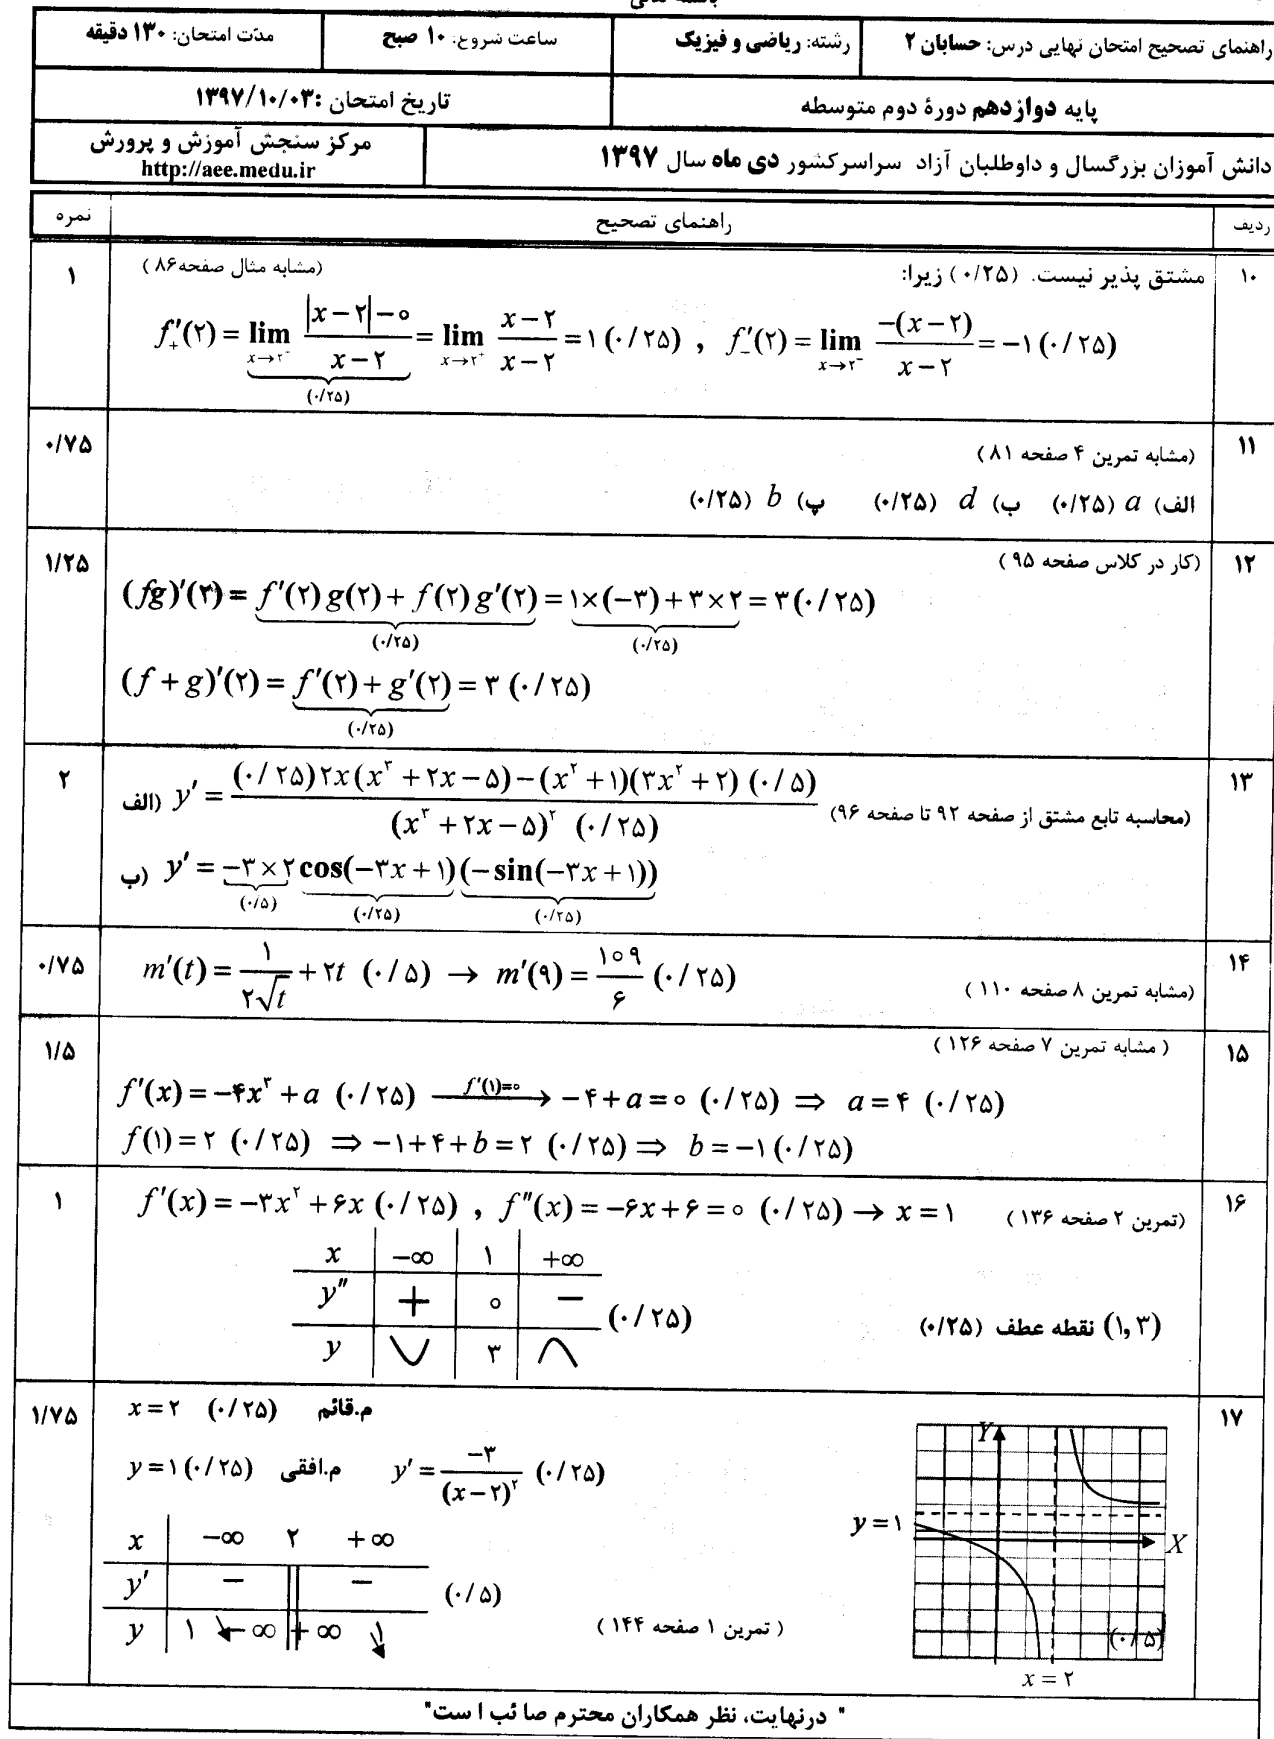 باسمه تعالی
راهنمای تصحیح امتحان نهایی درس: حسابان ۲ رشته: ریاضی و فیزیک ساعت شروع: ۱۰ صبح مدّت امتحان: ۱۳۰ دقیقه
پایه دوازدهم دورهٔ دوم متوسطه تاریخ امتحان :۱۳۹۷/۱۰/۰۳
دانش آموزان بزرگسال و داوطلبان آزاد سراسرکشور دی ماه سال ۱۳۹۷ مرکز سنجش آموزش و پرورش
http://aee.medu.ir
ردیف راهنمای تصحیح نمره
۱۰ مشتق پذیر نیست. (۰/۲۵) زیرا: (مشابه مثال صفحه۸۶) ۱
f'₊(۲) = lim x→۲⁻ (|x−۲|−۰)/(x−۲) (۰/۲۵) = lim x→۲⁺ (x−۲)/(x−۲) = ۱ (۰/۲۵) , f'₋(۲) = lim x→۲⁻ (−(x−۲))/(x−۲) = −۱ (۰/۲۵)
۱۱ (مشابه تمرین ۴ صفحه ۸۱) ۰/۷۵
الف) a (۰/۲۵) ب) d (۰/۲۵) پ) b (۰/۲۵)
۱۲ (کار در کلاس صفحه ۹۵) ۱/۲۵
(fg)'(۲) = f'(۲)g(۲)+f(۲)g'(۲) (۰/۲۵) = ۱×(−۳)+۳×۲ (۰/۲۵) = ۳ (۰/۲۵)
(f+g)'(۲) = f'(۲)+g'(۲) (۰/۲۵) = ۳ (۰/۲۵)
۱۳ (محاسبه تابع مشتق از صفحه ۹۲ تا صفحه ۹۶) ۲
الف) y' = ((۰/۲۵)۲x(x³+۲x−۵)−(x²+۱)(۳x²+۲) (۰/۵))/((x³+۲x−۵)² (۰/۲۵))
ب) y' = −۳×۲ (۰/۵) cos(−۳x+۱) (۰/۲۵) (−sin(−۳x+۱)) (۰/۲۵)
۱۴ m'(t) = ۱/(۲√t) + ۲t (۰/۵) → m'(۹) = ۱۰۹/۶ (۰/۲۵) (مشابه تمرین ۸ صفحه ۱۱۰) ۰/۷۵
۱۵ (مشابه تمرین ۷ صفحه ۱۲۶) ۱/۵
f'(x) = −۴x³+a (۰/۲۵) f'(۱)=۰ → −۴+a=۰ (۰/۲۵) ⇒ a=۴ (۰/۲۵)
f(۱)=۲ (۰/۲۵) ⇒ −۱+۴+b=۲ (۰/۲۵) ⇒ b=−۱ (۰/۲۵)
۱۶ f'(x) = −۳x²+۶x (۰/۲۵) , f''(x) = −۶x+۶=۰ (۰/۲۵) → x=۱ (تمرین ۲ صفحه ۱۳۶) ۱
x −∞ ۱ +∞
y'' + ۰ − (۰/۲۵)
(۱,۳) نقطه عطف (۰/۲۵)
y ∪ ۳ ∩
۱۷ x=۲ (۰/۲۵) م.قائم ۱/۷۵
y=۱ (۰/۲۵) م.افقی y' = −۳/(x−۲)² (۰/۲۵)
x −∞ ۲ +∞
y' − − (۰/۵)
y ۱ ↘ −∞ +∞ ↘ ۱
(تمرین ۱ صفحه ۱۴۴)
Y
y=۱
X
(۰/۵)
x=۲
" درنهایت، نظر همکاران محترم صائب است"